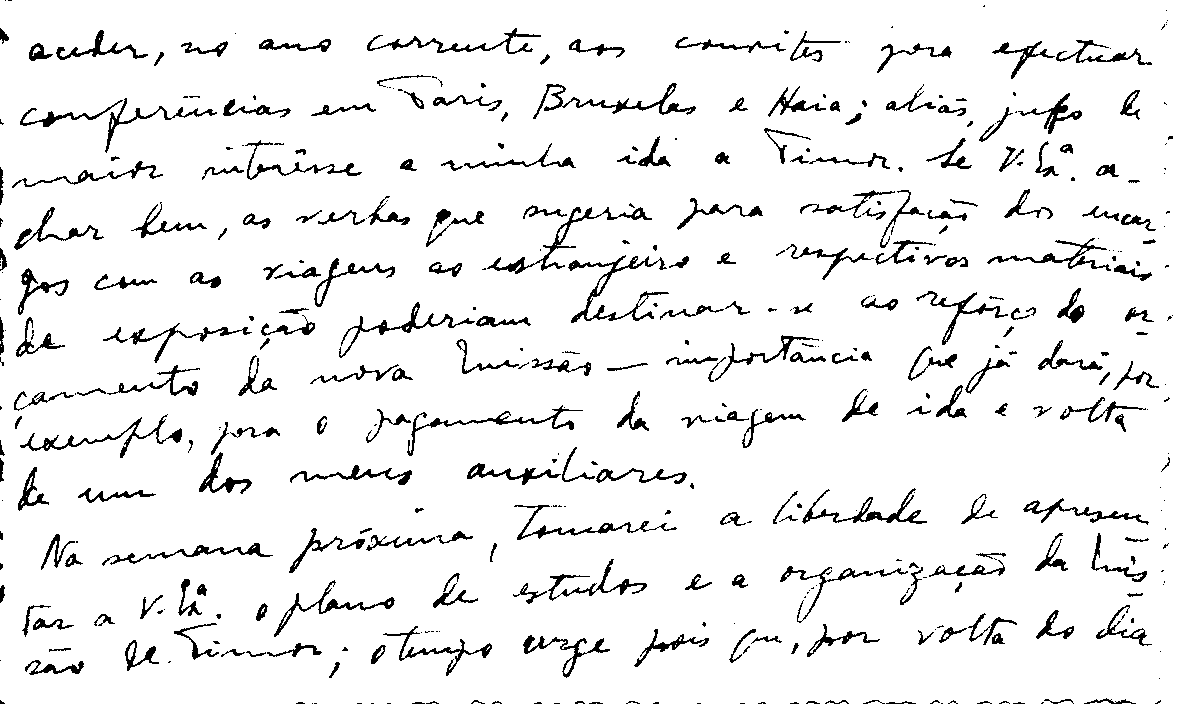 aceder, no ano corrente, aos convites para efectuar
conferências em Paris, Bruxelas e Haia; aliás, julgo de
maior interêsse a minha ida a Timor. Se V. Exª. a-
char bem, as verbas que sugeria para satisfação dos encar-
gos com as viagens ao estranjeiro e respectivos materiais
de exposição poderiam destinar-se ao refôrço do or-
çamento da nova Missão — importância que já dará, por
exemplo, para o pagamento da viagem de ida e volta
de um dos meus auxiliares.
Na semana próxima, tomarei a liberdade de apresen-
tar a V. Exª. o plano de estudos e a organização da Mis-
são de Timor; o tempo urge pois que, por volta do dia